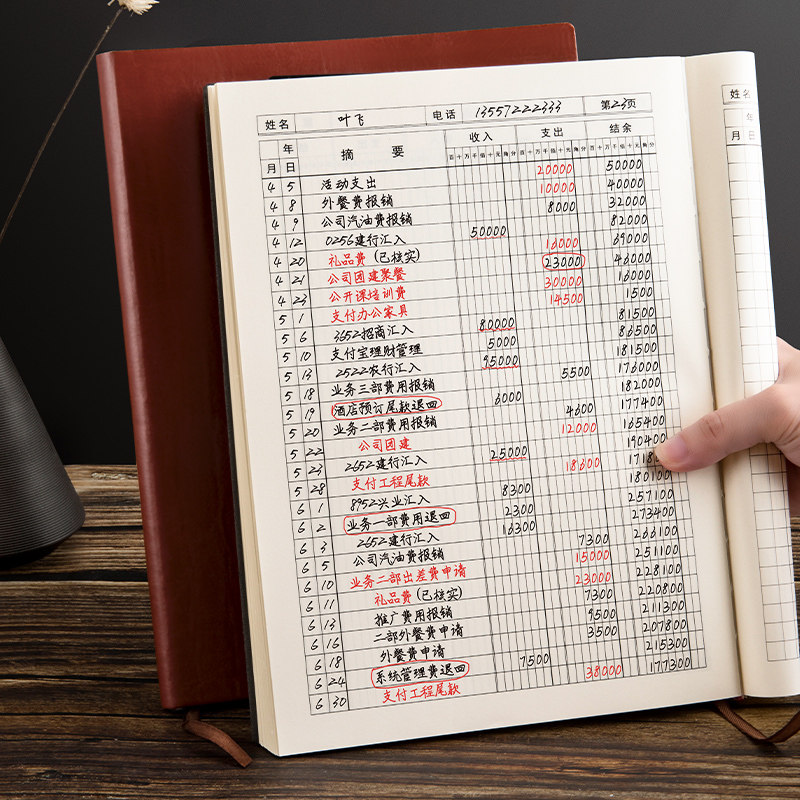 姓名 叶飞 电话 13557222333 第23页
年 摘要 收入 支出 结余
月 日 百十万千佰十元角分 百十万千佰十元角分 百十万千佰十元角分
4 5 活动支出 20000 50000
4 8 外餐费报销 10000 40000
4 9 公司汽油费报销 8000 32000
4 12 0256建行汇入 50000 82000
4 20 礼品费(已核实) 16000 69000
4 21 公司团建聚餐 23000 46000
4 23 公开课培训费 30000 16000
5 1 支付办公家具 14500 1500
5 6 3652招商汇入 80000 81500
5 10 支付宝理财管理 5000 86500
5 13 2522农行汇入 95000 181500
5 18 业务三部费用报销 5500 176000
5 19 酒店预订尾款退回 6000 182000
5 20 业务二部费用报销 4600 177400
5 22 公司团建 12000 165400
5 23 2652建行汇入 25000 190400
5 28 支付工程尾款 18600
6 1 8952兴业汇入 8300 180100
6 2 业务一部费用退回 2300 257100
6 3 2652建行汇入 16300 273400
6 5 公司汽油费报销 7300 266100
6 10 业务二部出差费申请 15000 251100
6 11 礼品费(已核实) 23000 228100
6 13 推广费用报销 7300 220800
6 16 二部外餐费申请 9500 211300
6 18 外餐费申请 3500 207800
6 24 系统管理费退回 7500 215300
6 30 支付工程尾款 38000 177300
姓名
年
月 日